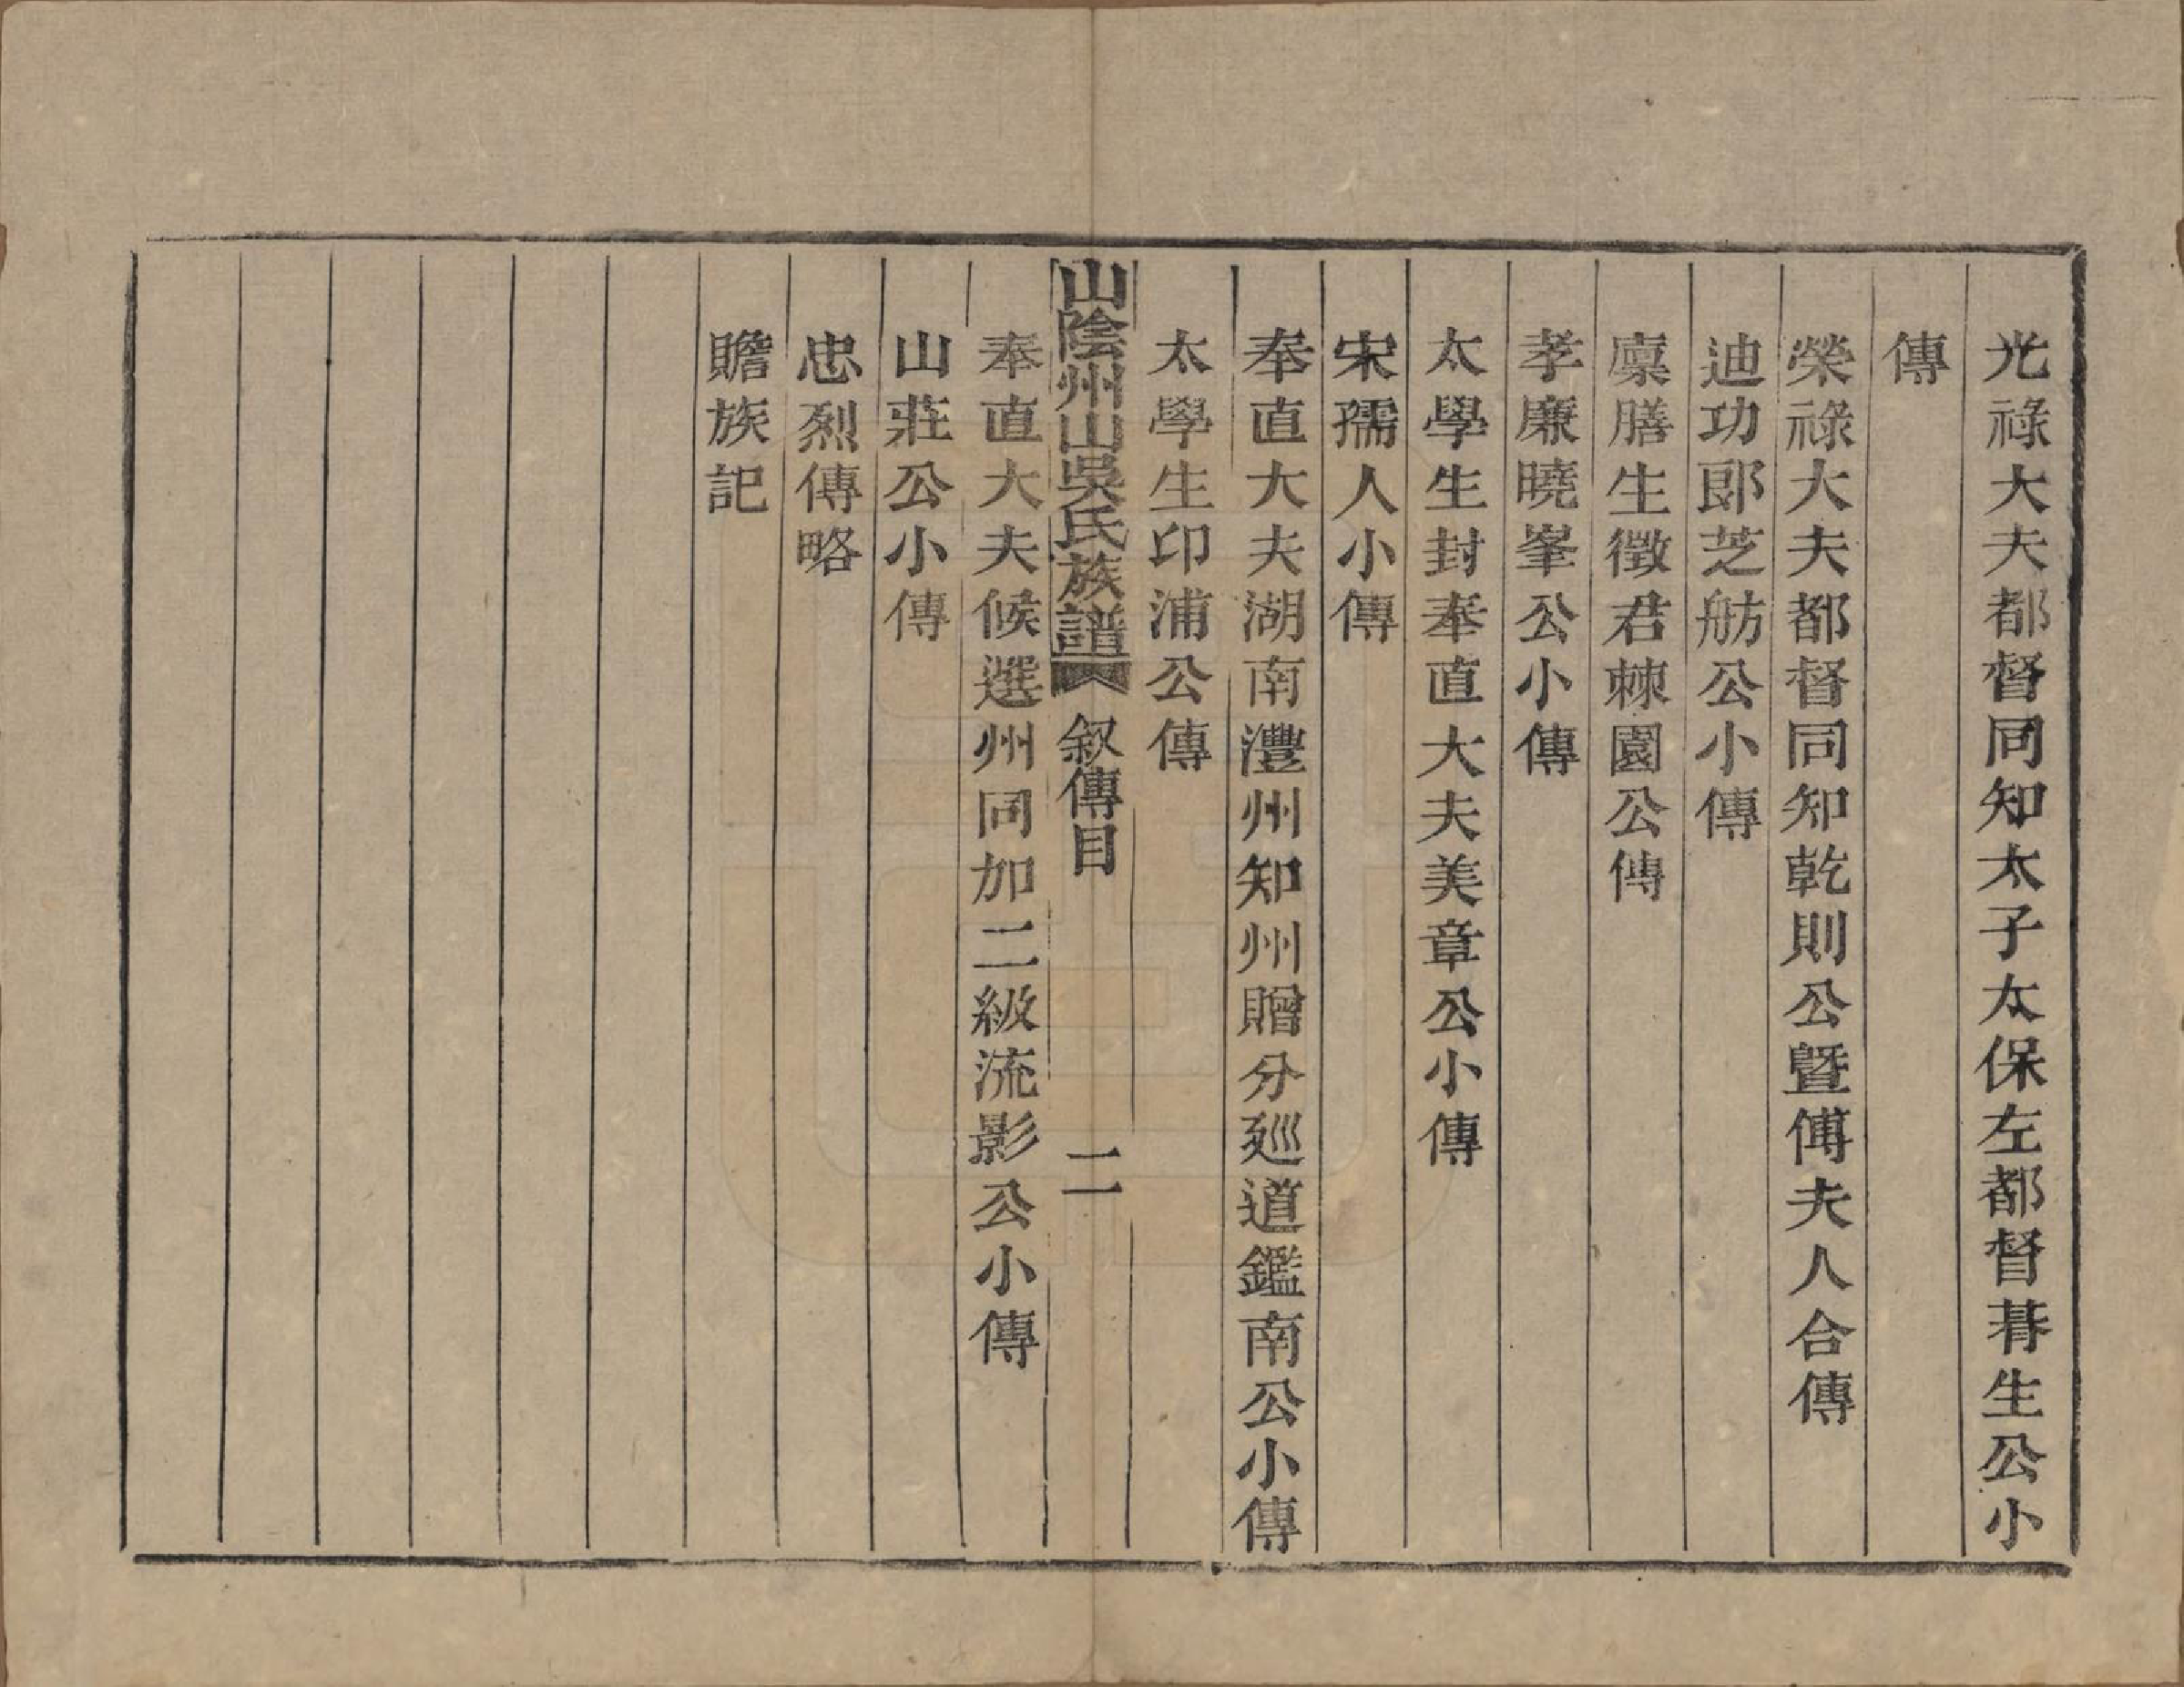 光祿大夫都督同知太子太保左都督朞生公小
傳
榮祿大夫都督同知乾則公曁傅夫人合傳
迪功郎芝舫公小傳
廩膳生徵君棘園公傳
孝廉曉峯公小傳
太學生封奉直大夫美章公小傳
宋孺人小傳
奉直大夫湖南灃州知州贈分廵道鑑南公小傳
太學生印浦公傳
山陰州山吳氏族譜 叙傳目 二
奉直大夫候選州同加二級流影公小傳
山莊公小傳
忠烈傳略
贍族記